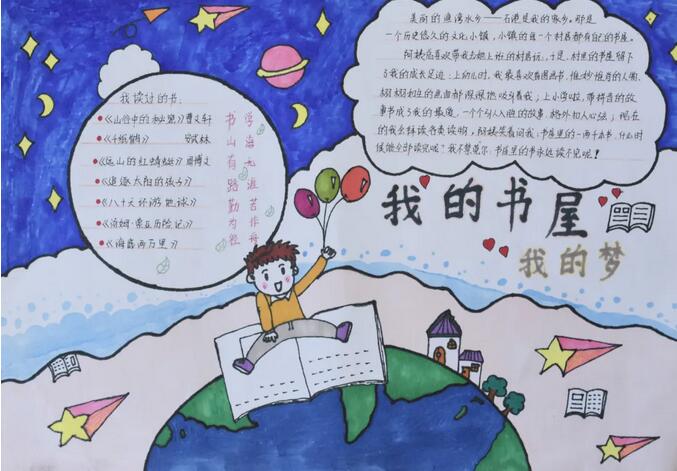 我读过的书
《山谷中的秘密》曹文轩
《千纸鹤》
《远山的红蜻蜓》
《追逐太阳的孩子》
《八十天环游地球》
《汤姆·索亚历险记》
《海底两万里》
书山有路勤为径
学海无涯苦作舟
美丽的渔湾水乡——石港是我的家乡。那是
一个历史悠久的文化小镇，小镇的每一个村居都有自己的书屋。
阿姨总喜欢带我去她上班的村居玩，于是，村里的书屋留下
了我的成长足迹：上幼儿时，我最喜欢看图画书，惟妙惟肖的人物，
栩栩如生的画面都深深地吸引着我；上小学啦，带拼音的故
事书成了我的最爱，一个个引人入胜的故事，格外扣人心弦；现在
的我怎样读各类读物，阿姨笑着问我，书屋里的一两千本书，什么时
候能全部读完呢？我不禁莞尔，书屋里的书永远读不完呢！
我的书屋
我的梦